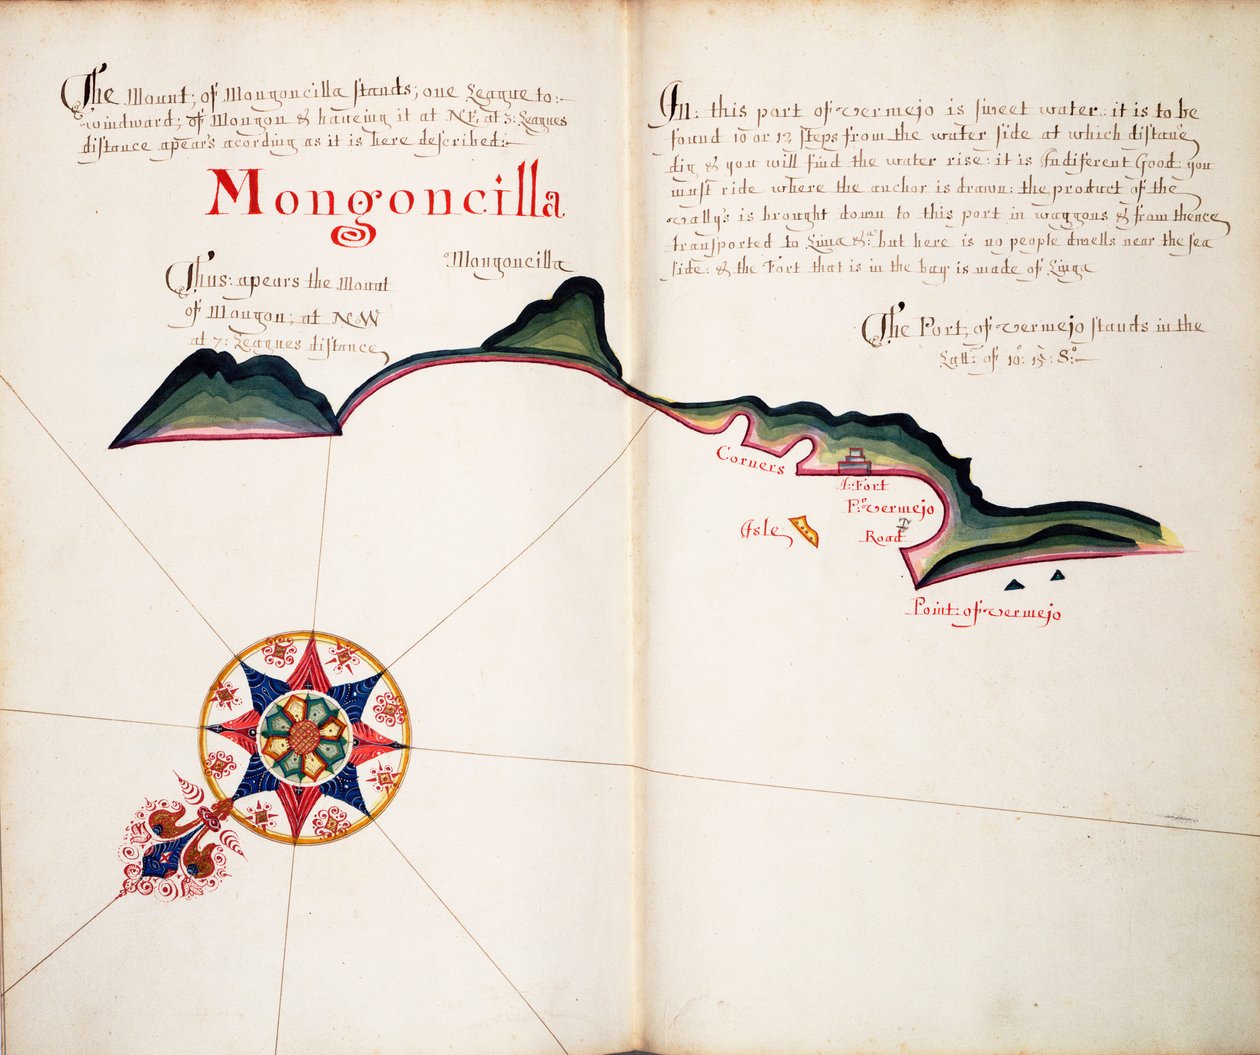 The Mount; of Mongoncilla stands; one League to:
windward; of Mongon & haveing it at NE, at 3: Leagues
distance apears acording as it is here described:
Mongoncilla
Thus: apears the Mount
of Mongon; at NW
at 7: Leagues distance
Mongoncilla
In: this port of vermejo is sweet water: it is to be
found 10 or 12 steps from the water side at which distance
dig & you will find the water rise: it is Indiferent Good you
must ride where the anchor is drawn: the product of the
vally's is brought down to this port in waggons & from thence
transported to Lima &a: but here is no people dwells near the sea
side: & the Fort that is in the bay is made of
The Port, of vermejo stands in the
Latt: of 10: 15: So:
Corners
A: Fort
Po: vermejo
Isle
Road
Point: of vermejo